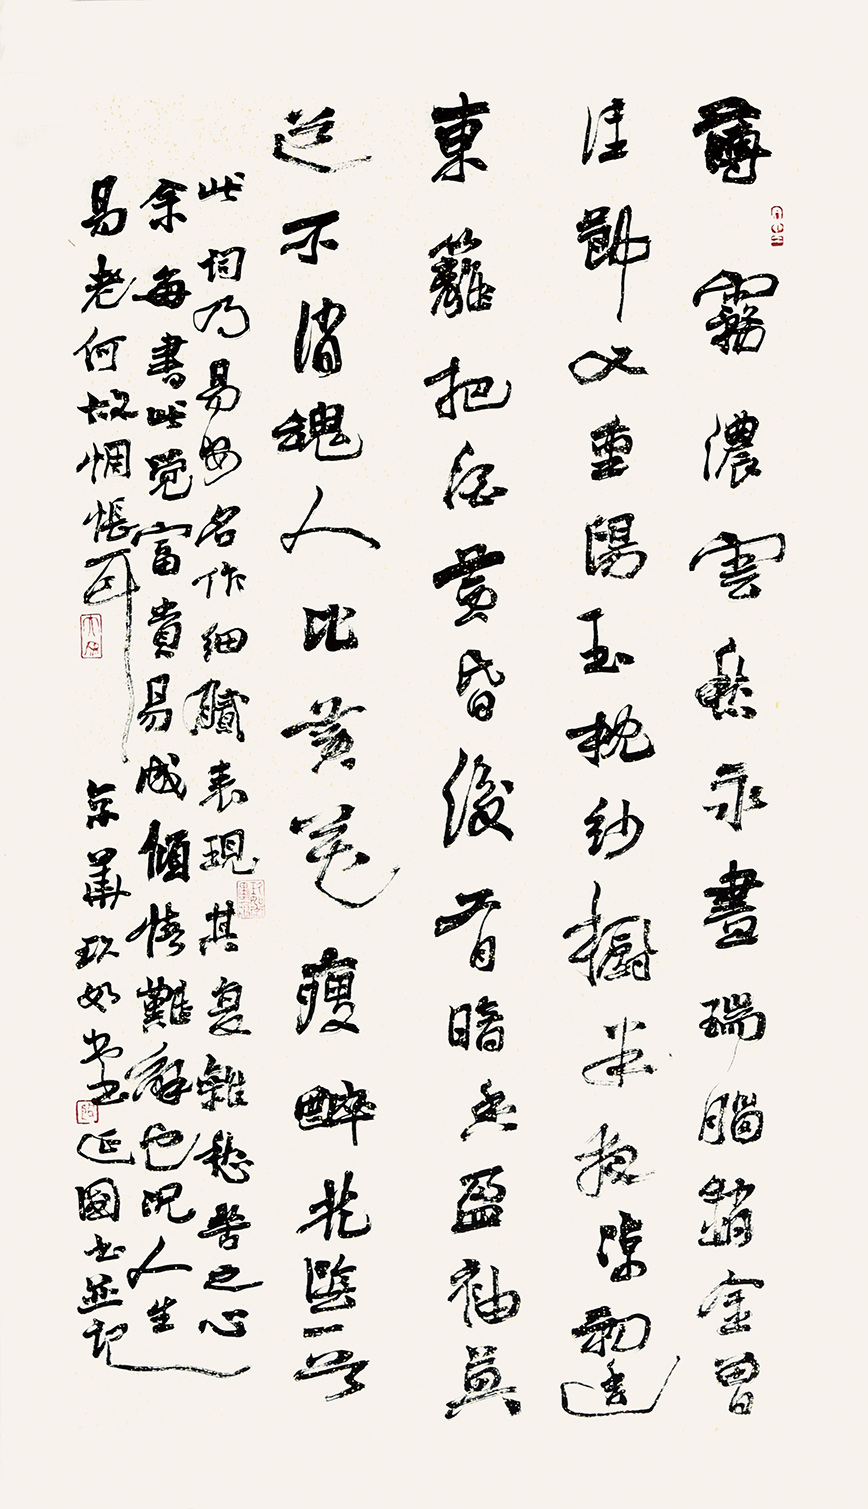 薄霧濃雲愁永晝瑞腦銷金獸
佳節又重陽玉枕紗櫥半夜涼初透
東籬把酒黃昏後有暗香盈袖莫
道不消魂人比黃花瘦醉花陰一首
此詞乃易安名作細膩表現其复雜愁苦之心
余每書此覺富貴易成傾情難解也况人生
易老何故惆悵耳 京華玖如堂延國書並記